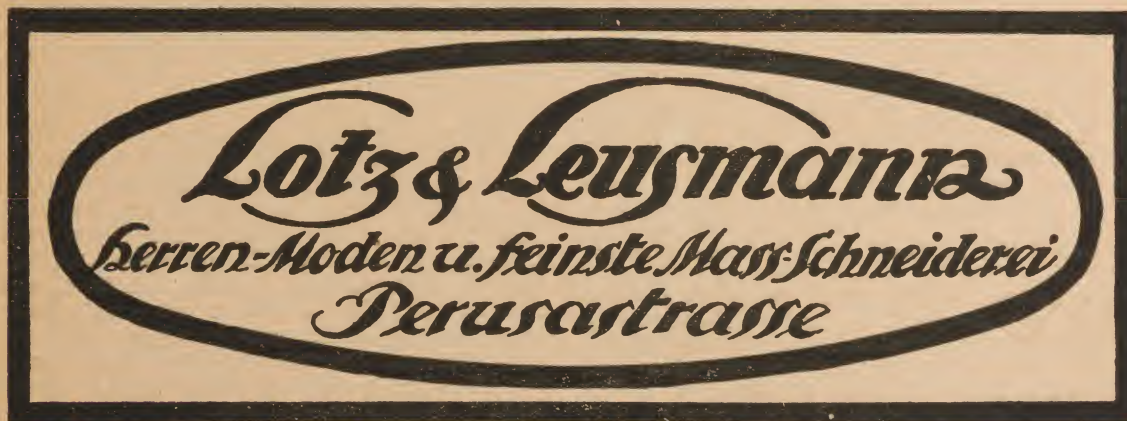 Lotz & Leusmann
Herren-Moden u. feinste Mass-Schneiderei
Perusastrasse